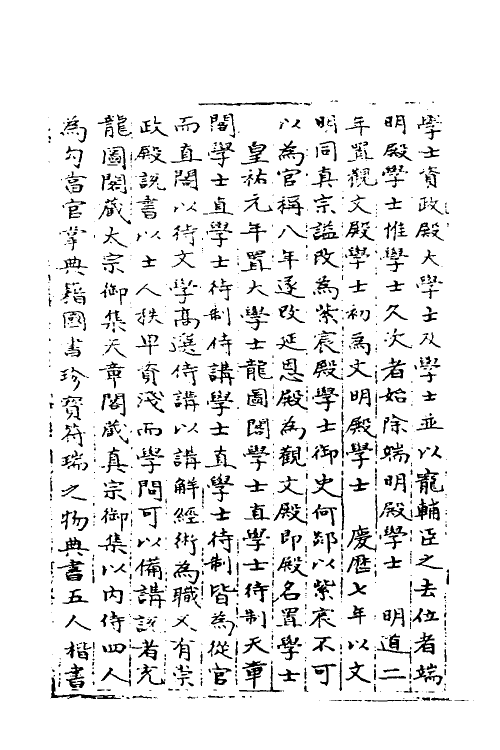 學士資政殿大學士及學士並以寵輔臣之去位者端
明殿學士惟學士久次者始除端明殿學士 明道二
年置觀文殿學士初為文明殿學士 慶歷七年以文
明同真宗諡改為紫宸殿學士御史何郯以紫宸不可
以為官稱八年遂改延恩殿為觀文殿即殿名置學士
皇祐元年置大學士龍圖閣學士直學士待制天章
閣學士直學士待制侍講學士直學士待制皆為從官
而直閣以待文學高選侍講以講解經術為職又有崇
政殿說書以士人秩卑資淺而學問可以備講說者充
龍圖閣藏太宗御集天章閣藏真宗御集以內侍四人
為勾當官掌典籍圖書珍寶符瑞之物典書五人楷書